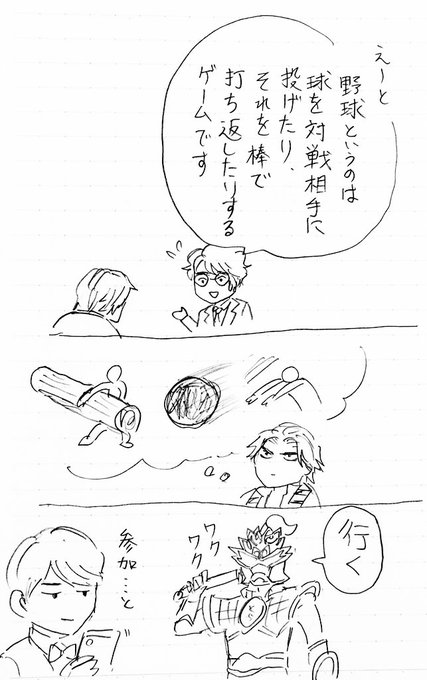 えーと
野球というのは
球を対戦相手に
投げたり、
それを棒で
打ち返したりする
ゲームです
行く
ワク
ワク
参加…と